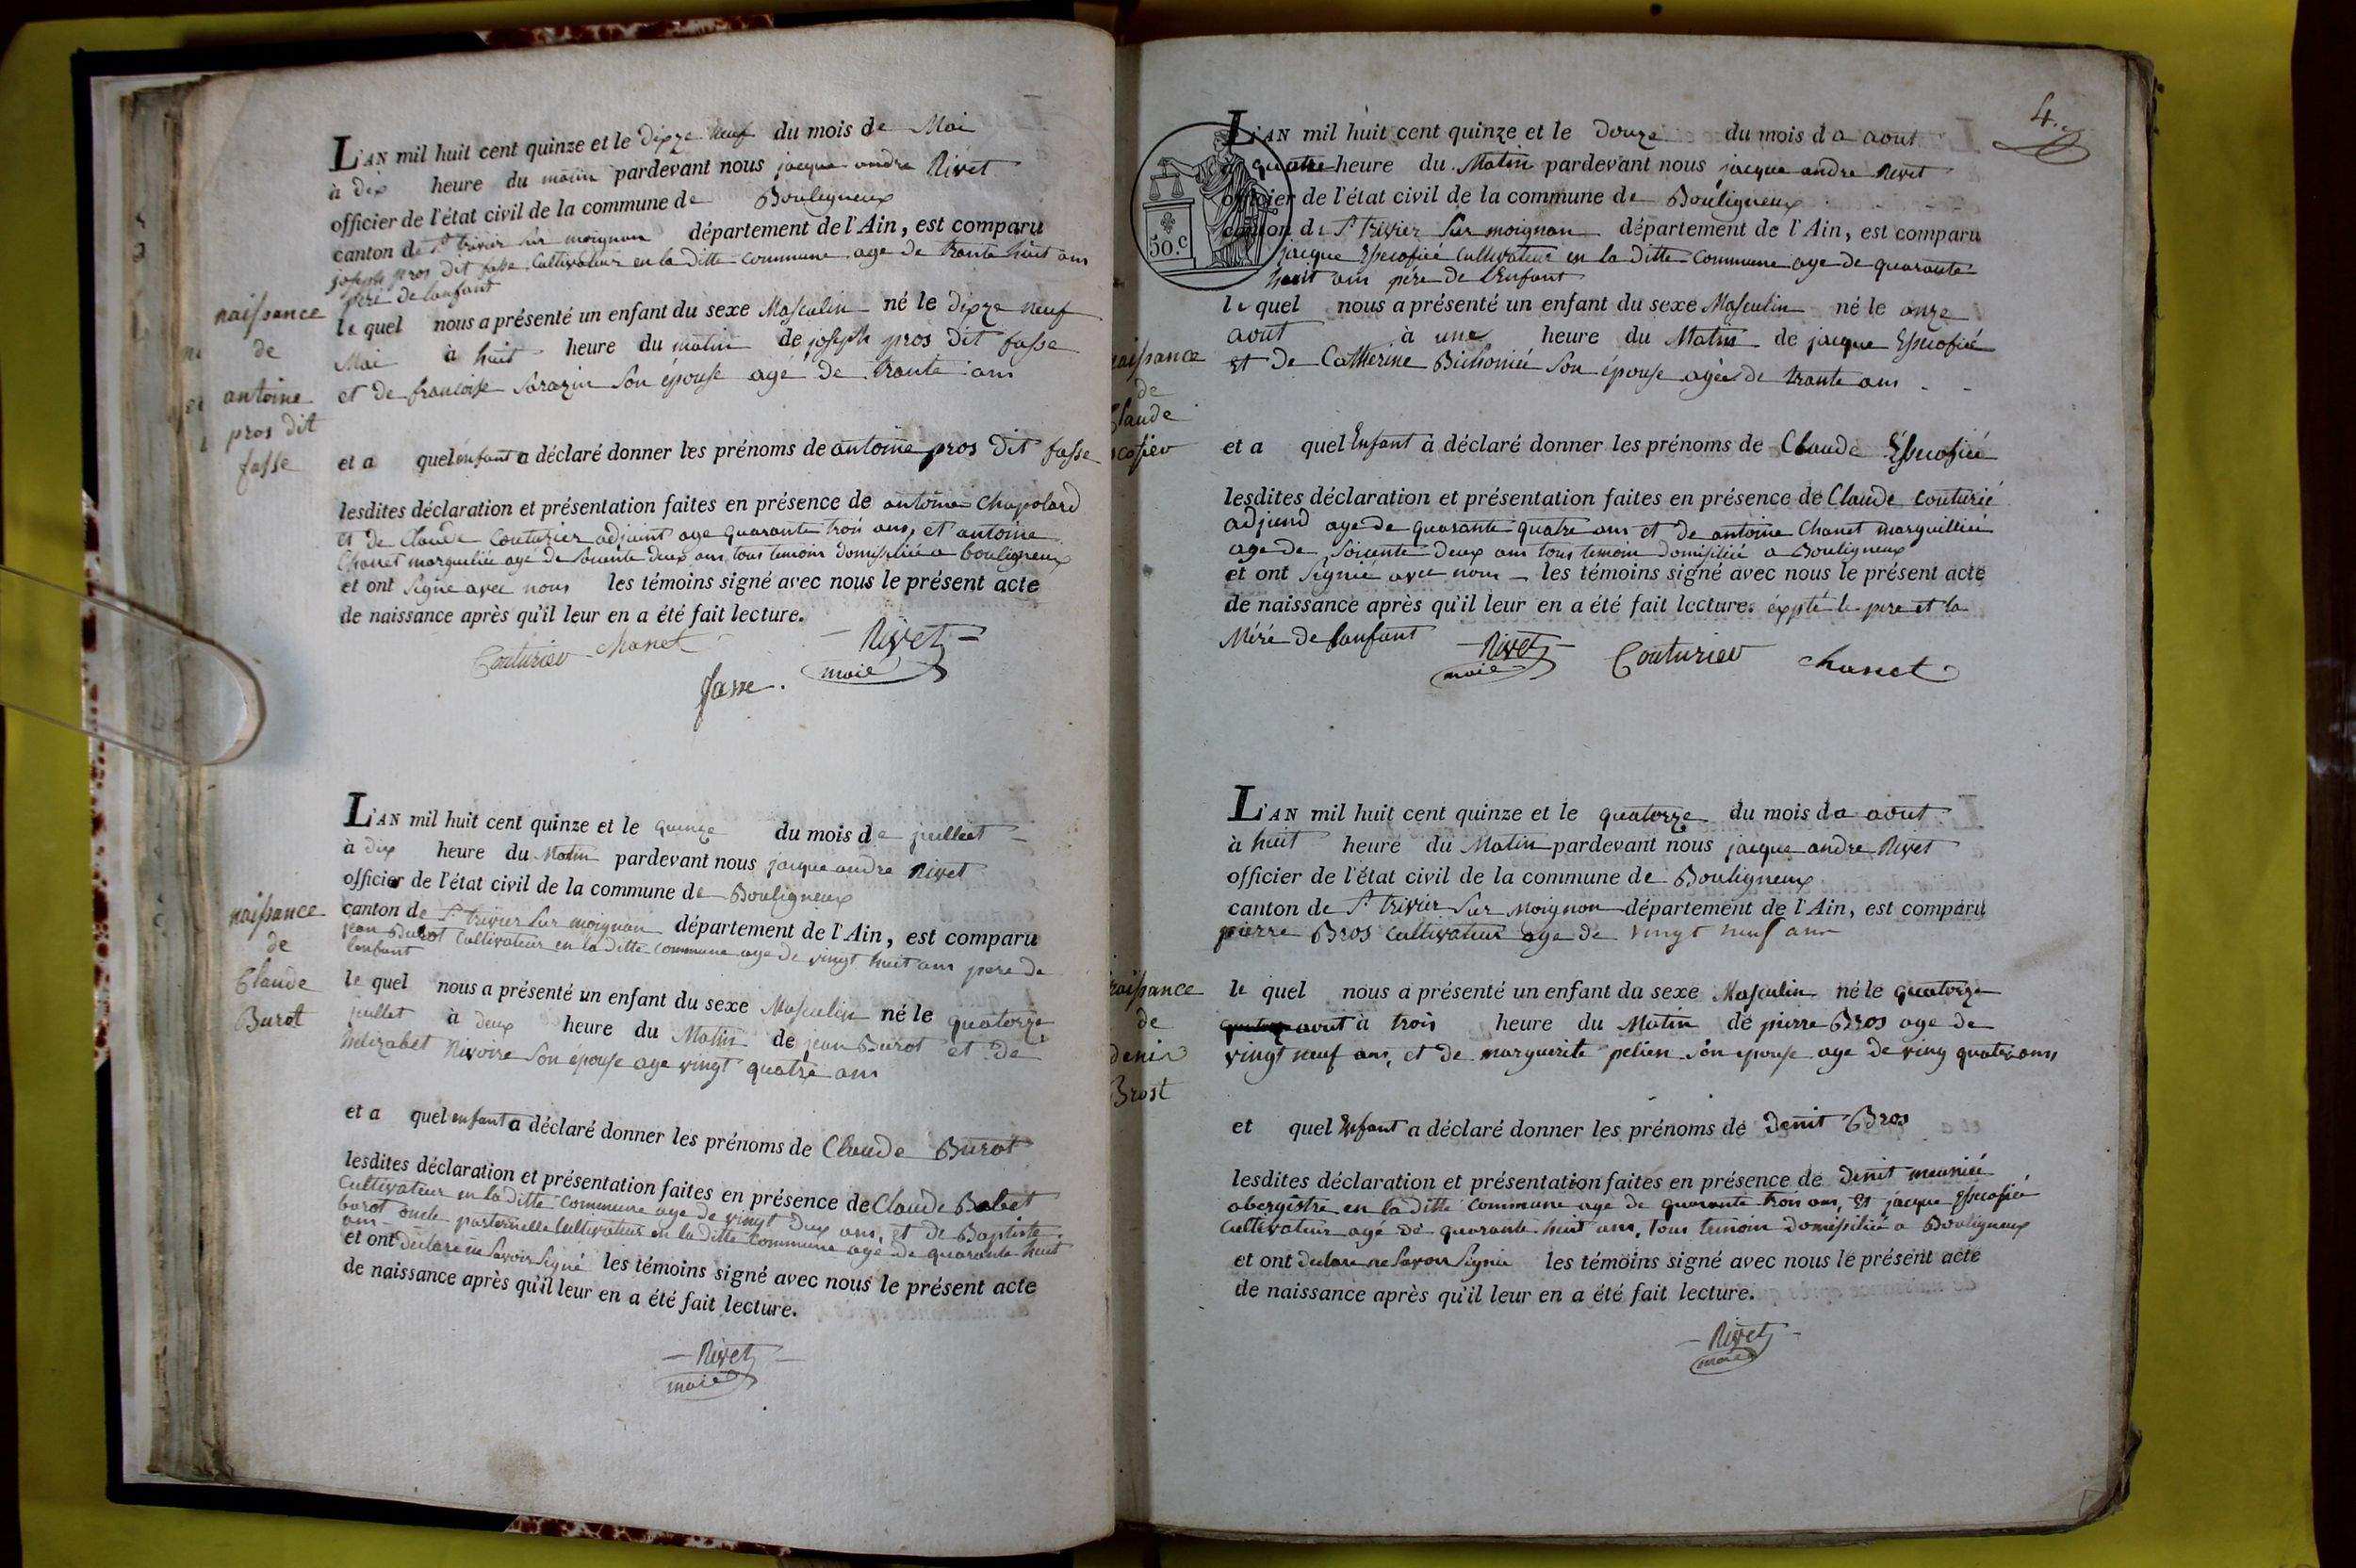 L'AN mil huit cent quinze et le dixze neuf du mois de Mai
à dix heure du matin pardevant nous jacque andre Rivet
officier de l'état civil de la commune de Bouligneux
canton de St trivier sur moignan département de l'Ain, est comparu
joseph pros dit fasse Cultivateur en la ditte commune age de trante huit ans
pere de lanfant
le quel nous a présenté un enfant du sexe Masculin né le dixze neuf
Mai à huit heure du matin de joseph pros dit fasse
et de francoise Sarazin son épouse agé de trante ans
et a quel enfant a déclaré donner les prénoms de antoine pros dit fasse
lesdites déclaration et présentation faites en présence de antoine Chapolard
et de Claude Couturier adjoint age quarante trois ans, et antoine
Chanet marguiliée agé de soicente deux ans tous temoins domisiliée a bouligneux
et ont signe avec nous les témoins signé avec nous le présent acte
de naissance après qu'il leur en a été fait lecture.
Couturier chanet Rivet
fasse . maie
naissance
de
antoine
pros dit
fasse
L'AN mil huit cent quinze et le quinze du mois de juilliet
à dix heure du Matin pardevant nous jacque andre Rivet
officier de l'état civil de la commune de Bouligneux
canton de St trivier sur moignan département de l'Ain, est comparu
jean Burot Cultivateur en la ditte commune age de vingt huit ans pere de
lenfant
le quel nous a présenté un enfant du sexe Masculin né le quatorze
juillet à deux heure du Matin de jean Burot et de
Rivoire son épouse age vingt quatre ans
et a quel enfant a déclaré donner les prénoms de Claude Burot
lesdites déclaration et présentation faites en présence de Claude Babet
Cultivateur en la ditte commune age de vingt deux ans, et de Baptiste
burot oncle parternelle Cultivateur en la ditte Commune age de quarante huit
ans
et ont declare ne savoir signé les témoins signé avec nous le présent acte
de naissance après qu'il leur en a été fait lecture.
Rivet
maie
naissance
de
Claude
Burot
4.
L'AN mil huit cent quinze et le douze du mois da aout
à quatre heure du Matin pardevant nous jacque andre Rivet
officier de l'état civil de la commune de Bouligneux
canton de St trivier sur moignan département de l'Ain, est comparu
jacque Escofiée Cultivateur en la ditte Commune age de quarante
huit ans pére de lEnfant
50.c
le quel nous a présenté un enfant du sexe Masculin né le onze
aout à une heure du Matin de jacque Escofiée
et de Catherine son épouse agée de trante ans
et a quel Enfant à déclaré donner les prénoms de Claude Escofiée
lesdites déclaration et présentation faites en présence de Claude Couturié
adjund age de quarante quatre ans et de antoine Chanet marguilliée
age de soicente deux ans tous temoin domisiliée a Bouligneux
et ont signié avec nous les témoins signé avec nous le présent acte
de naissance après qu'il leur en a été fait lecture. éxpté le pere et la
Méré de lanfant
Rivet Couturier chanet
maie
naissance
de
Claude
scofier
L'AN mil huit cent quinze et le quatorze du mois da aout
à huit heure du Matin pardevant nous jacque andre Rivet
officier de l'état civil de la commune de Bouligneux
canton de St trivier sur Moignan département de l'Ain, est comparu
pierre Bros cultivateur age de vingt neuf ans
le quel nous a présenté un enfant du sexe Masculin né le quatorze
aout à trois heure du Matin de pierre Bros age de
vingt neuf ans, et de marguerite pelien son epouse age de ving quatre ans
et quel Enfant a déclaré donner les prénoms de denit Bros
lesdites déclaration et présentation faites en présence de denit meuniée
obergistre en la ditte commune age de quarante trois ans, Et jacque Escofiée
Cultivateur agé de quarante huit ans, tous temoin domisiliée a Bouligneux
et ont declare ne savoir signiee les témoins signé avec nous le présent acte
de naissance après qu'il leur en a été fait lecture.
Rivet
maie
naissance
de
denis
Brost